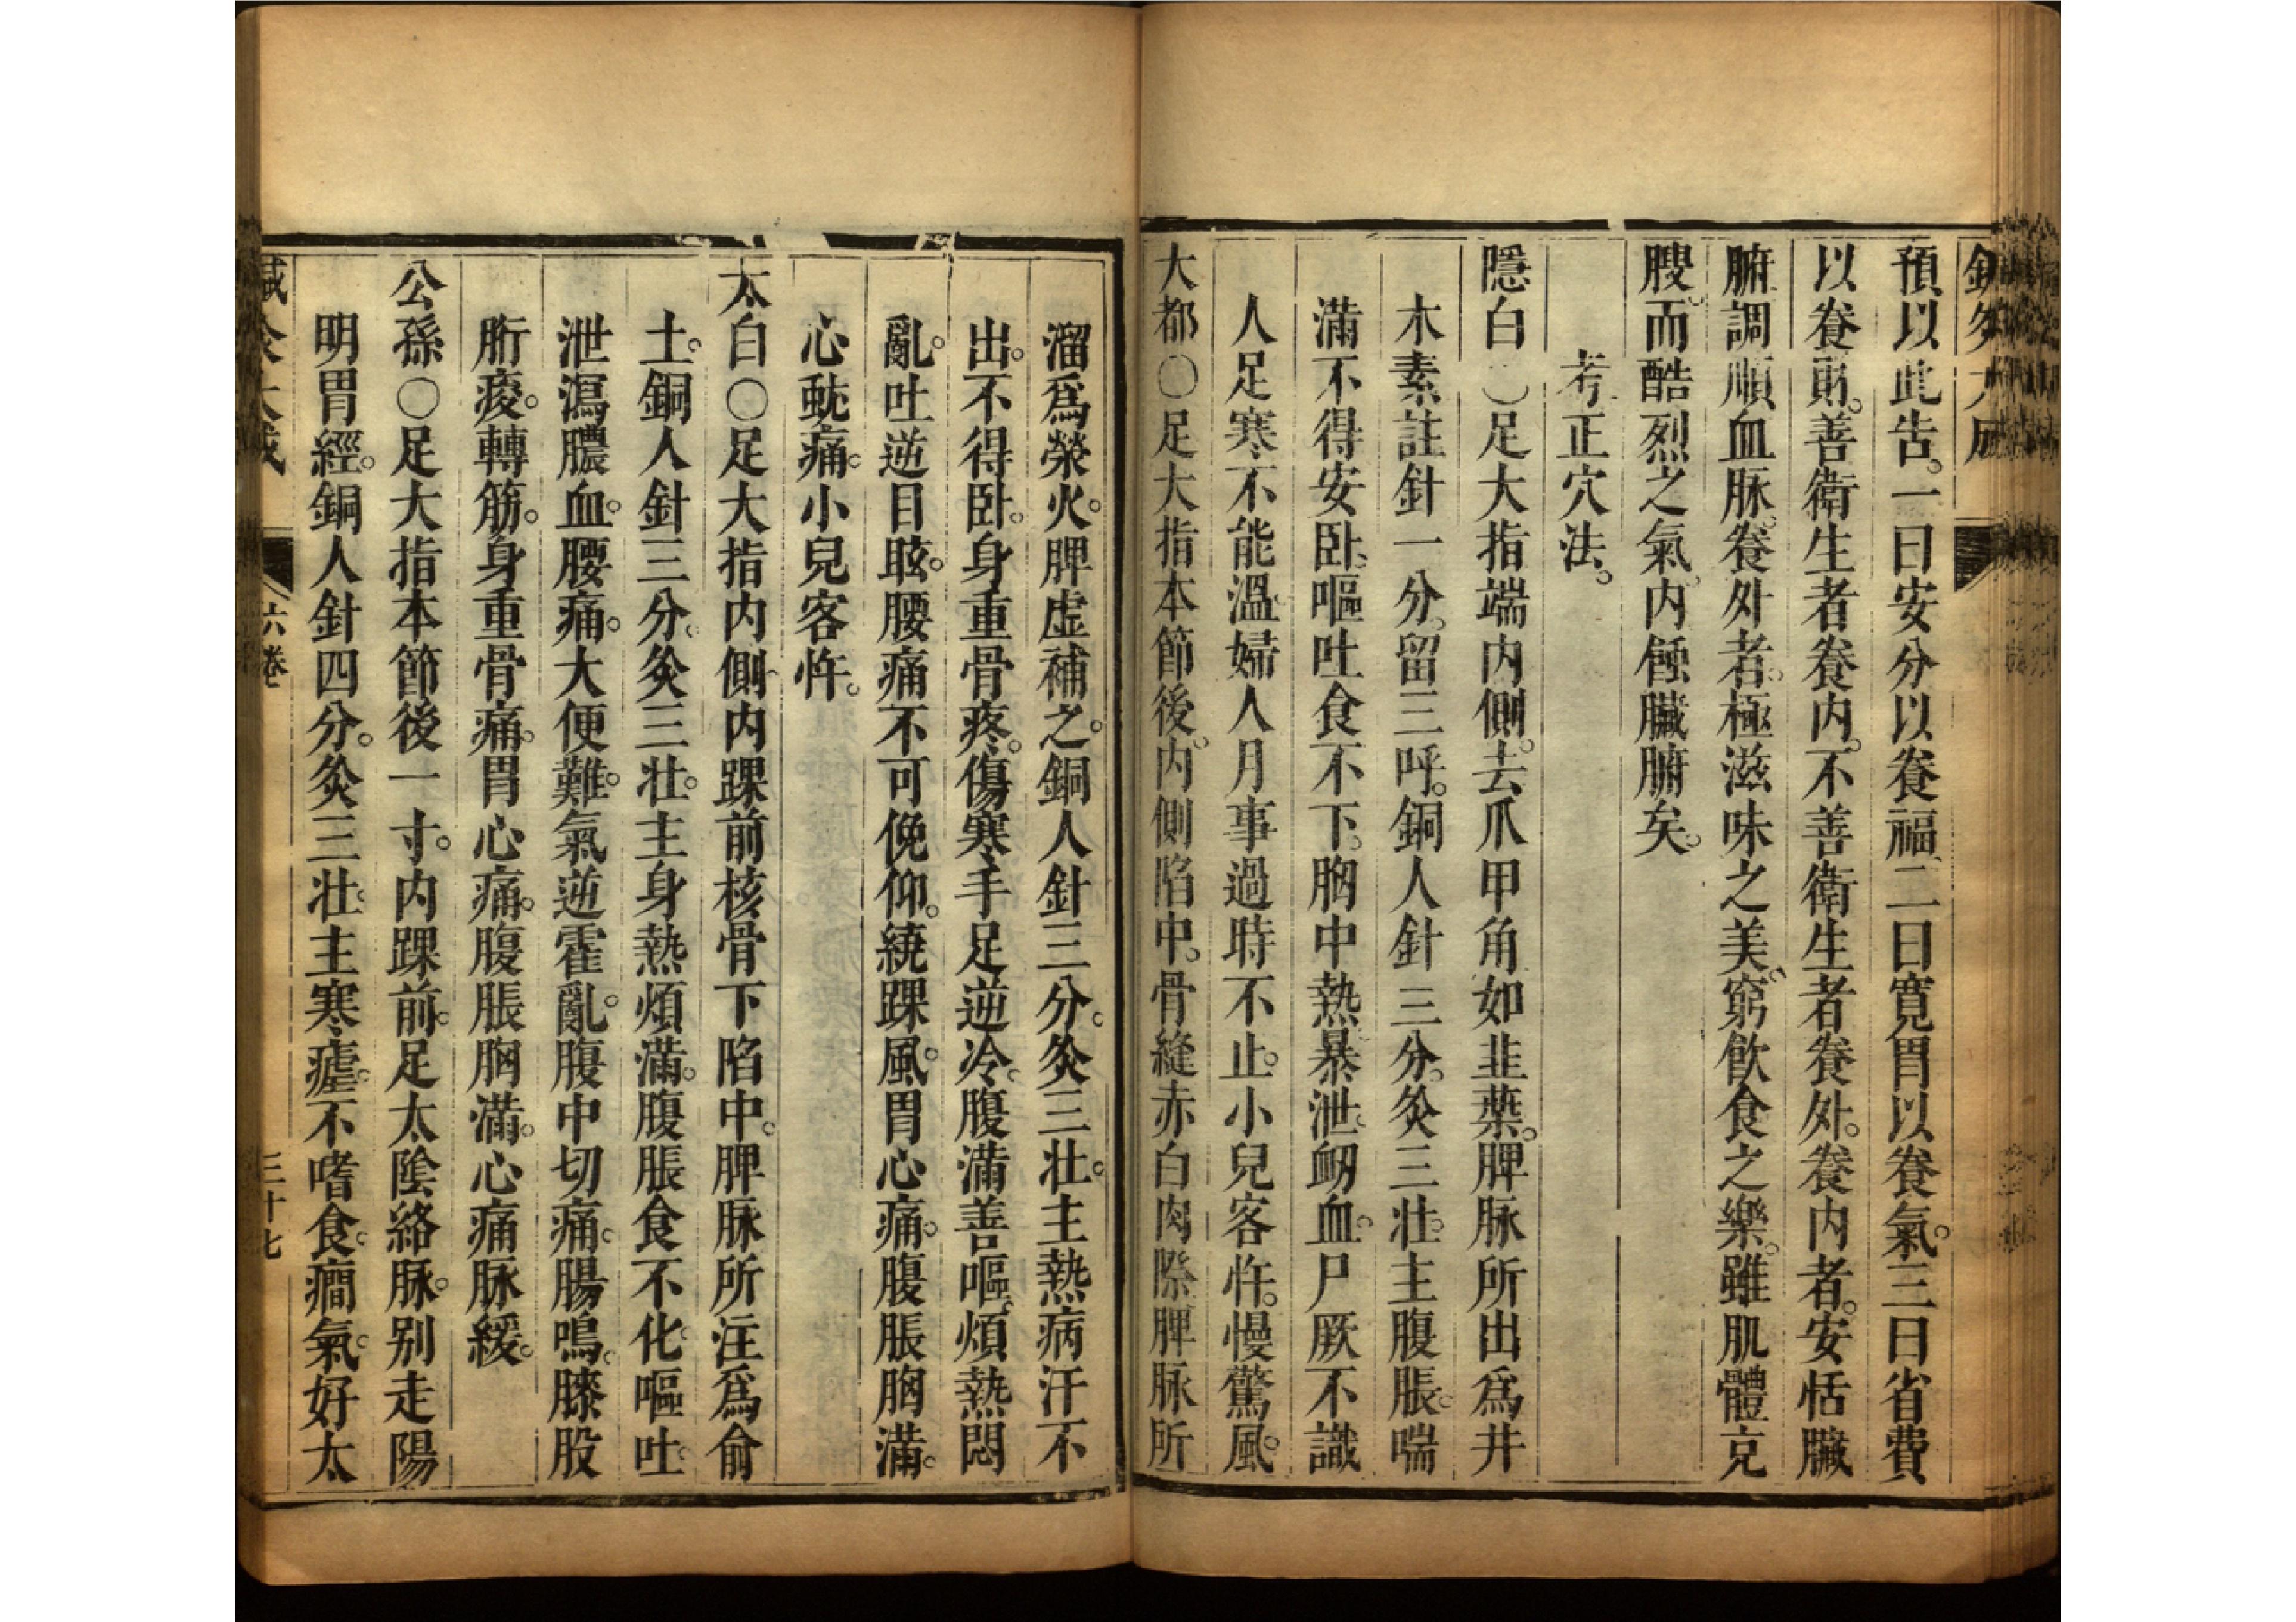 預以此告。一曰安分以養福二曰寬胃以養氣。三曰省費
以養財。善衛生者養内。不善衛生者養外。養内者。安恬臟
腑調順血脉。養外者。極滋味之美。窮飲食之樂。雖肌體充
腴。而酷烈之氣。内蝕臟腑矣。
考正穴法。
隱白○足大指端内側。去爪甲角如韭葉。脾脉所出爲井
木素註針一分。留三呼。銅人針三分。灸三壯。主腹脹。喘
滿不得安卧。嘔吐食不下。胸中熱暴泄。衂血。尸厥不識
人足寒不能溫。婦人月事過時不止。小兒客忤。慢驚風。
大都○足大指本節後。内側陷中。骨縫赤白肉際脾脉所
溜爲滎火。脾虚補之。銅人針三分。灸三壯。主熱病汗不
出。不得卧。身重骨疼。傷寒手足逆冷。腹滿善嘔。煩熱悶
亂。吐逆目眩。腰痛不可俛仰。繞踝風。胃心痛。腹脹胸滿。
心蚘痛。小兒客忤。
太白○足大指内側。内踝前核骨下陷中。脾脉所注爲俞
土。銅人針三分。灸三壯。主身熱煩滿。腹脹食不化。嘔吐。
泄瀉膿血。腰痛。大便難。氣逆霍亂。腹中切痛。腸鳴。膝股
胻痠。轉筋。身重骨痛。胃心痛。腹脹胸滿。心痛脉緩。
公孫○足大指本節後一寸。内踝前。足太陰絡脉。别走陽
明胃經。銅人針四分。灸三壯。主寒瘧。不嗜食。癇氣。好太
六卷
三十七